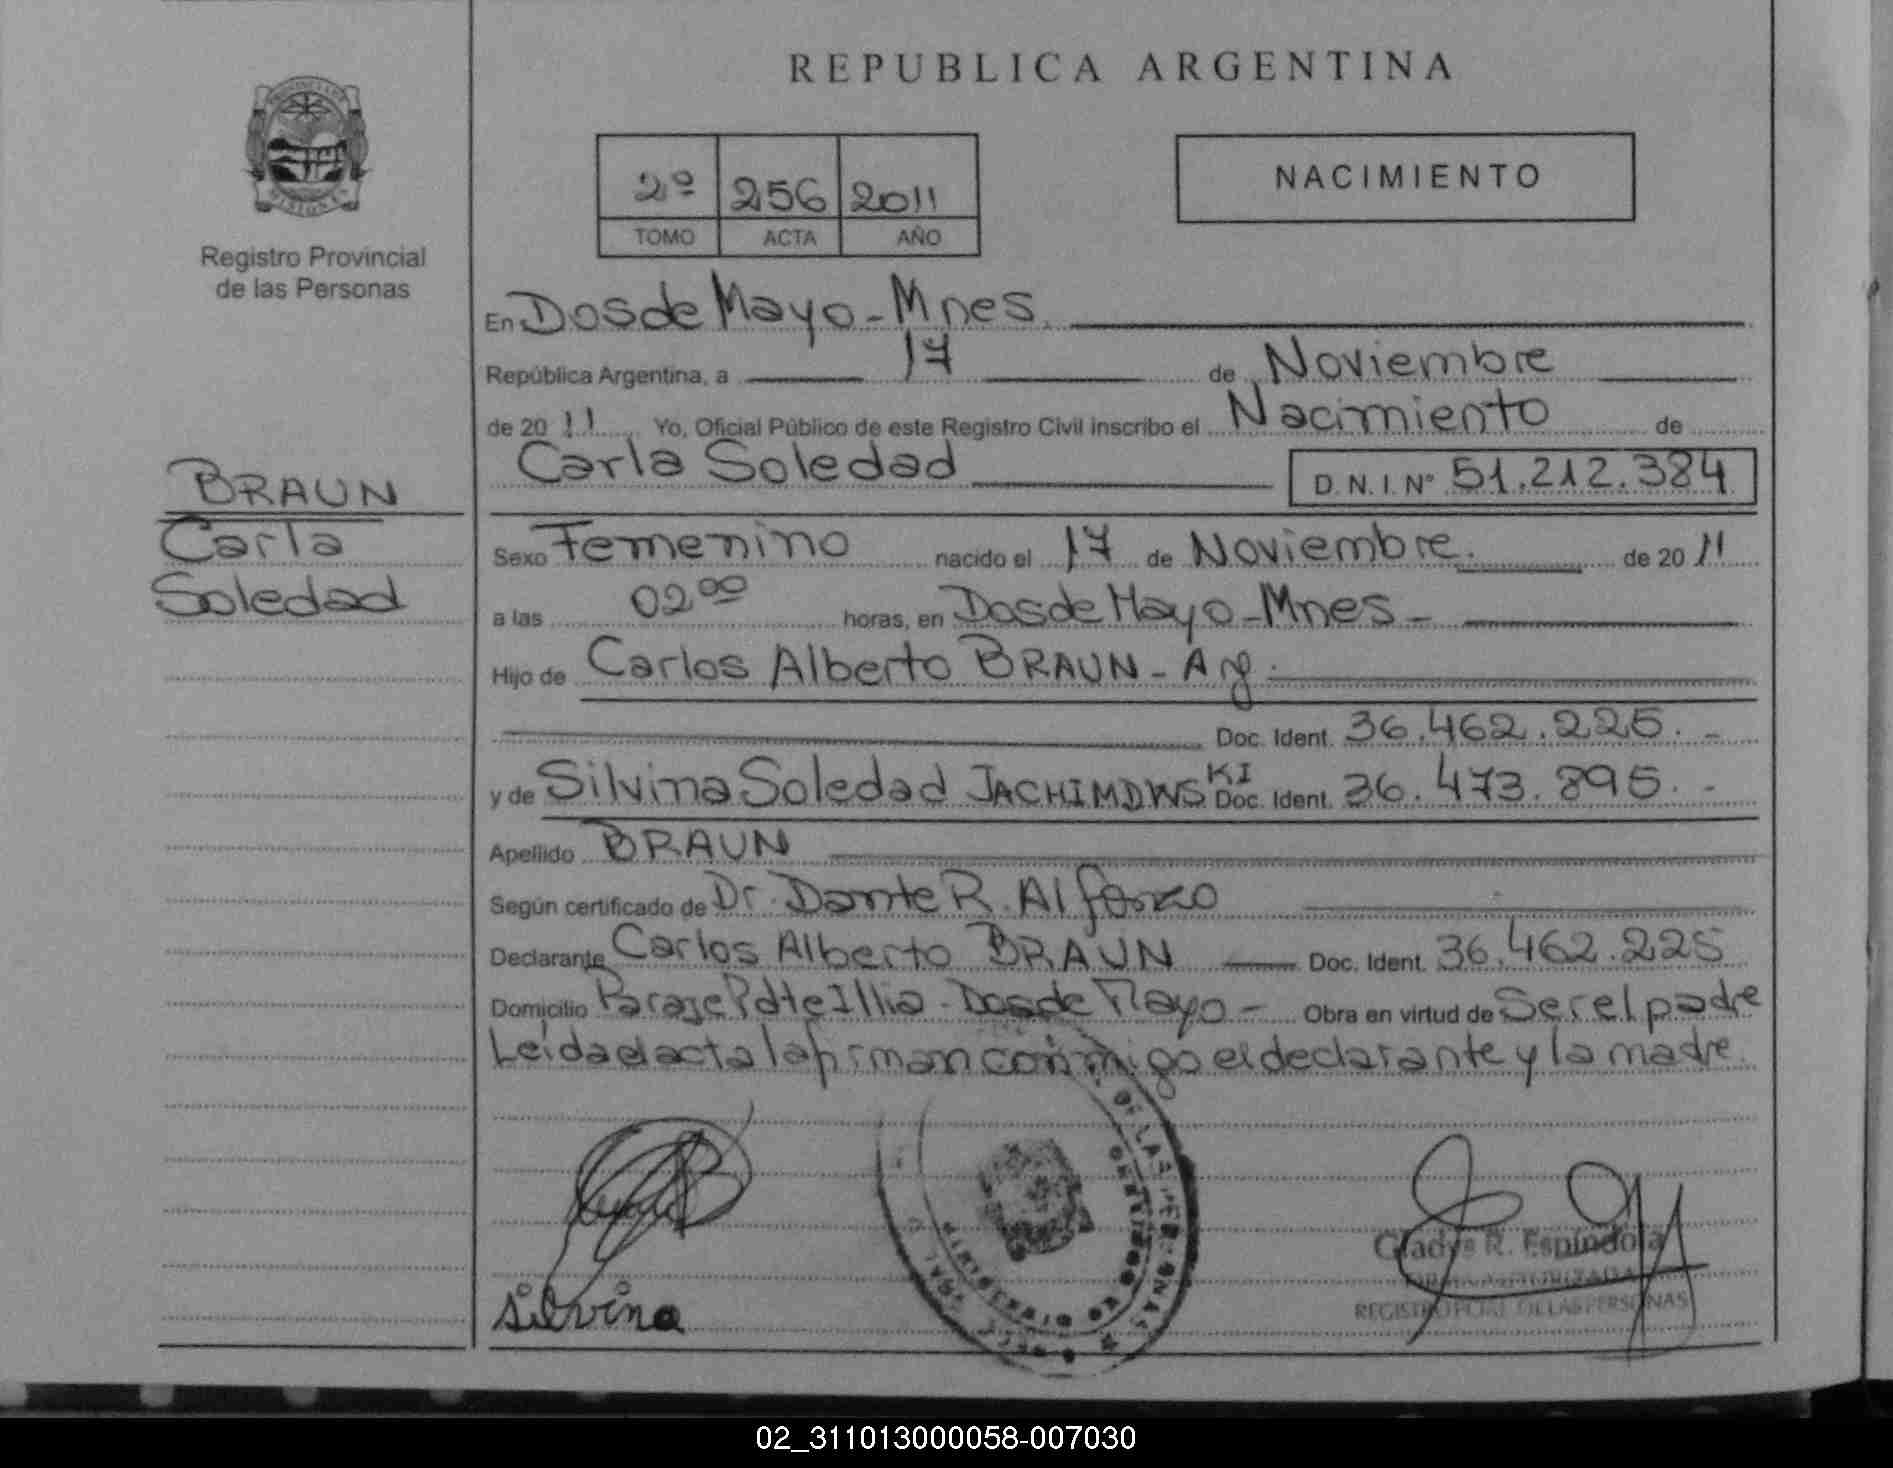 REPUBLICA ARGENTINA
Registro Provincial
de las Personas
2º 256 2011
TOMO ACTA AÑO
NACIMIENTO
BRAUN
Carla
Soledad
En Dos de Mayo - Mnes.
República Argentina, a 17 de Noviembre
de 2011 Yo, Oficial Público de este Registro Civil inscribo el Nacimiento de
Carla Soledad D.N.I. Nº 51.212.384
Sexo Femenino nacido el 17 de Noviembre. de 2011
a las 02ºº horas, en Dos de Mayo - Mnes -
Hijo de Carlos Alberto BRAUN - Arg.
Doc. Ident. 36.462.225. -
y de Silvina Soledad JACHIMOWSKI Doc. Ident. 36.473.895. -
Apellido BRAUN
Según certificado de Dr. Dante R. Alfonzo
Declarante Carlos Alberto BRAUN Doc. Ident. 36.462.225
Domicilio Paraje Pdte Illia - Dos de Mayo - Obra en virtud de Ser el padre
Leída el acta la firman conmigo el declarante y la madre.
DE LAS PERSONAS
Silvina
Gladys R. Espindola
AUTORIZADA
REGISTRO PCIAL. DE LAS PERSONAS
02_311013000058-007030